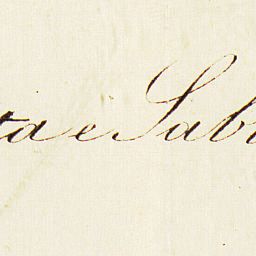 ta e Sab